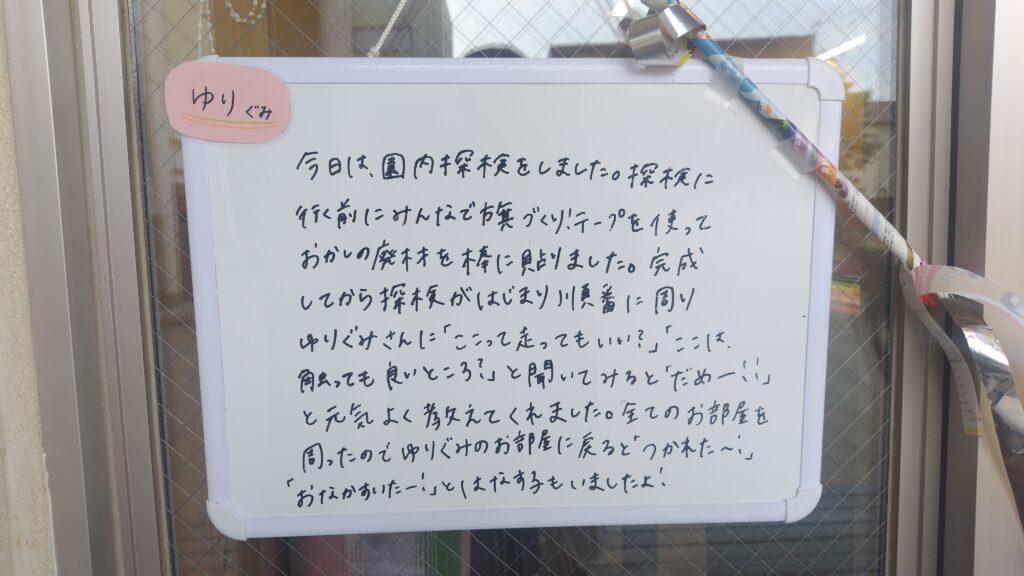 ゆりぐみ
今日は、園内探検をしました。探検に
行く前にみんなで旗づくり!テープを使って
おかしの廃材を棒に貼りました。完成
してから探検がはじまり順番に周り
ゆりぐみさんに「ここって走ってもいい?」「ここは、
触っても良いところ?」と聞いてみると「だめー!!」
と元気よく教えてくれました。全てのお部屋を
周ったのでゆりぐみのお部屋に戻ると「つかれた〜!」
「おなかすいたー!」とはなす子もいましたよ!